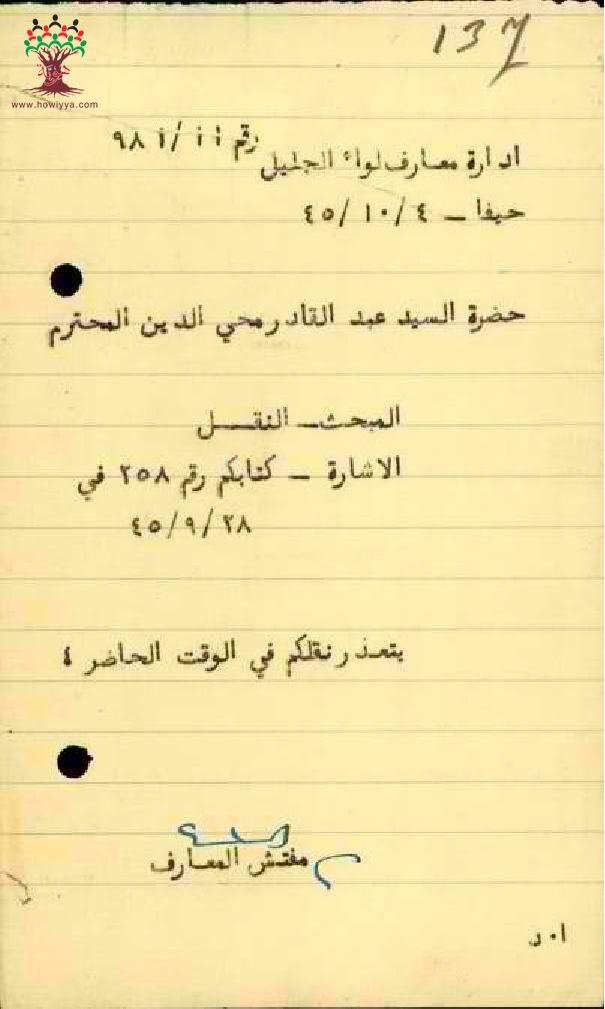 137
www.howiyya.com
ادارة معارف لواء الجليل رقم أأ/أ ٩٨
حيفا ــ ٤/ ١٠/ ٤٥
حضرة السيد عبد القادر محي الدين المحترم
المبحث ــ النقــل
الاشارة ــ كتابكم رقم ٢٥٨ في
٢٨/ ٩/ ٤٥
يتعذر نقلكم في الوقت الحاضر ؛
مفتش المعارف
ا٠ د